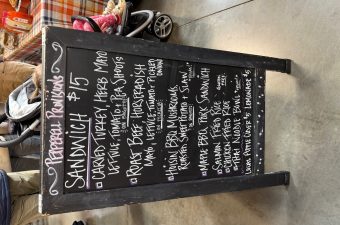 Pepperell Provisions
SANDWICH $15
CARVED TURKEY, HERB MAYO
LETTUCE + TOMATO + PEA SHOOTS
ROAST BEEF HORSERADISH
MAYO LETTUCE + TOMATO + PICKLED
ONION
HOISIN BBQ MUSHROOMS
ROASTED + SLAW
MAPLE BBQ PORK SANDWICH
SALMON FRIED RICE
CHICKEN FRIED RICE
THAI NOODLE BOWL
COFFEE $3 LEMONADE $5